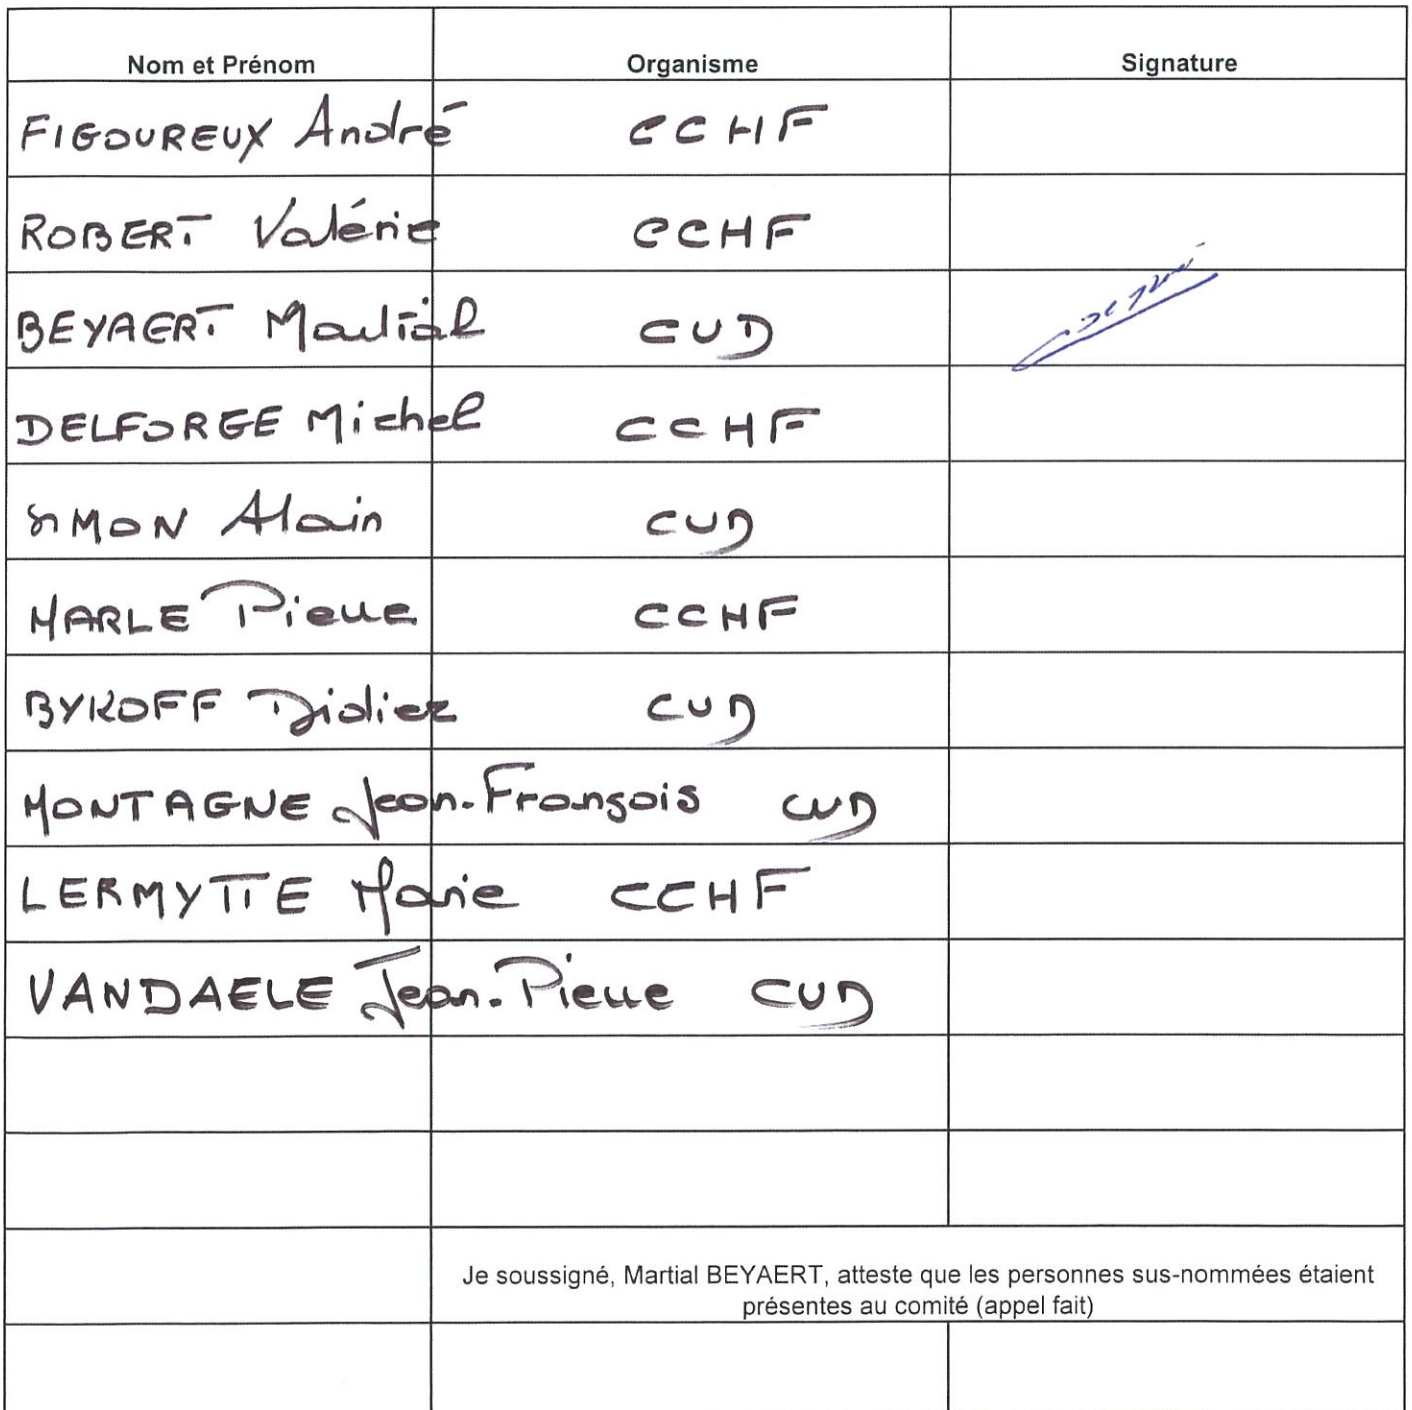 Nom et Prénom Organisme Signature
FIGOUREUX André CCHF
ROBERT Valérie CCHF
BEYAERT Martial CUD
DELFORGE Michel CCHF
SIMON Alain CUD
HARLE Pierre CCHF
BYKOFF Didier CUD
MONTAGNE Jean-François CUD
LERMYTTE Marie CCHF
VANDAELE Jean-Pierre CUD
Je soussigné, Martial BEYAERT, atteste que les personnes sus-nommées étaient
présentes au comité (appel fait)